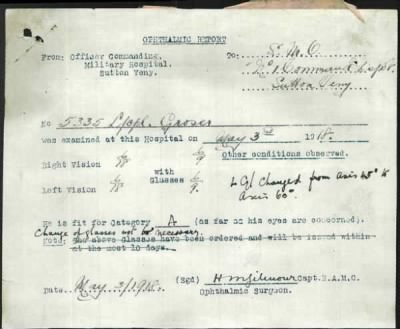 OPHTHALMIC REPORT
From: Officer Commanding, To: S. M. O.
Military Hospital, No 1 Command Depot
Sutton Veny. Sutton Veny
No 5335 L/Cpl. Groser
was examined at this Hospital on May 3rd 1918.
Right Vision 6/18 6/9 Other conditions observed.
with
Glasses
Left Vision 6/18 6/9 L Gl changed from axis 45° to
axis 60°.
He is fit for Category A (as far as his eyes are concerned).
Change of glasses not be necessary.
NOTE: The above Glasses have been ordered and will be issued within
at the most 10 days.
Date. May 3/1918. (Sgd) H M Gilmour Capt.R.A.M.C.
Ophthalmic Surgeon.